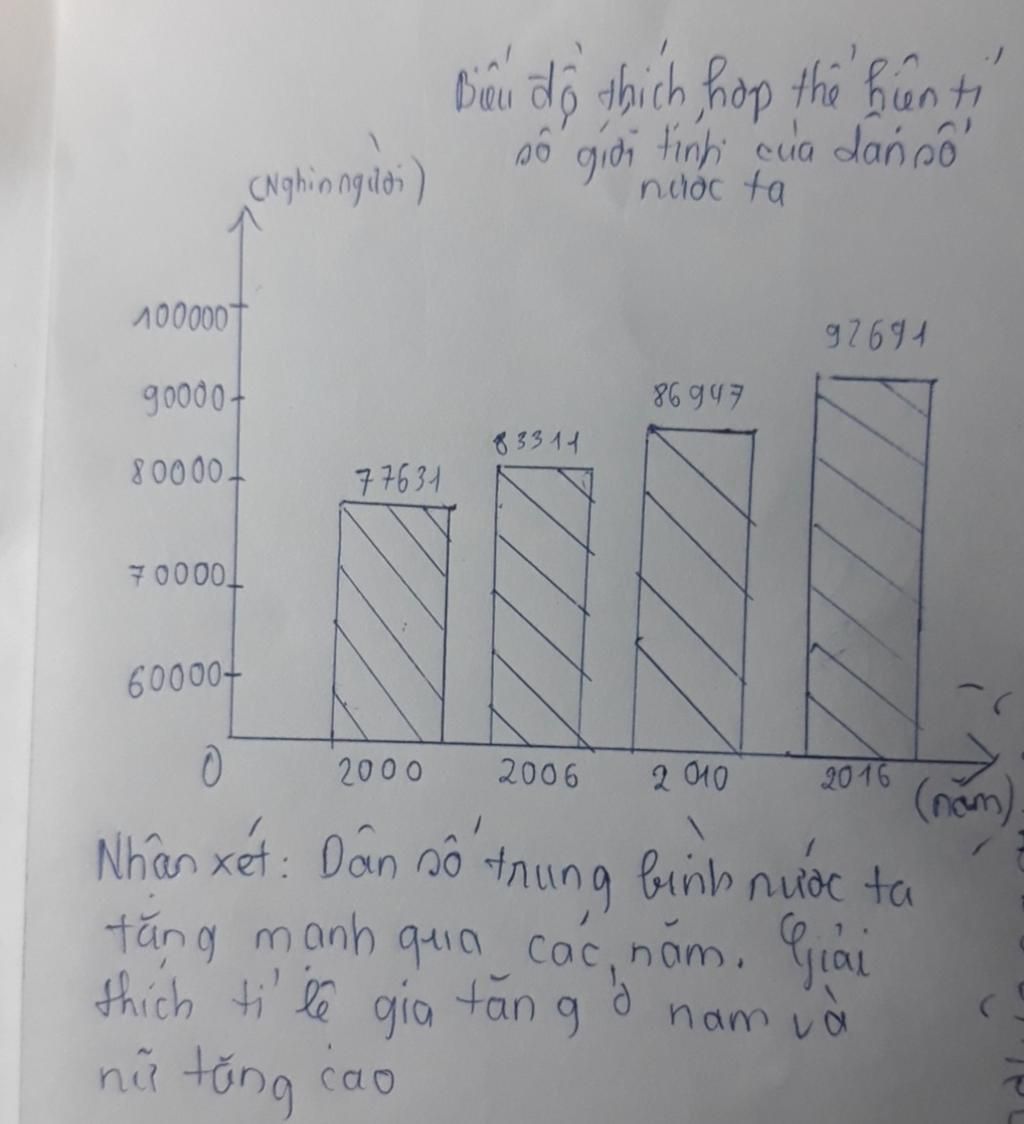 Biểu đồ thích hợp thể hiện tỉ
số giới tính của dân số
nước ta
(Nghìn người)
100000
90000
80000
70000
60000
0
77631
83311
86947
92691
2000 2006 2010 2016
(năm)
Nhận xét: Dân số trung bình nước ta
tăng mạnh qua các năm. Giải
thích tỉ lệ gia tăng ở nam và
nữ tăng cao